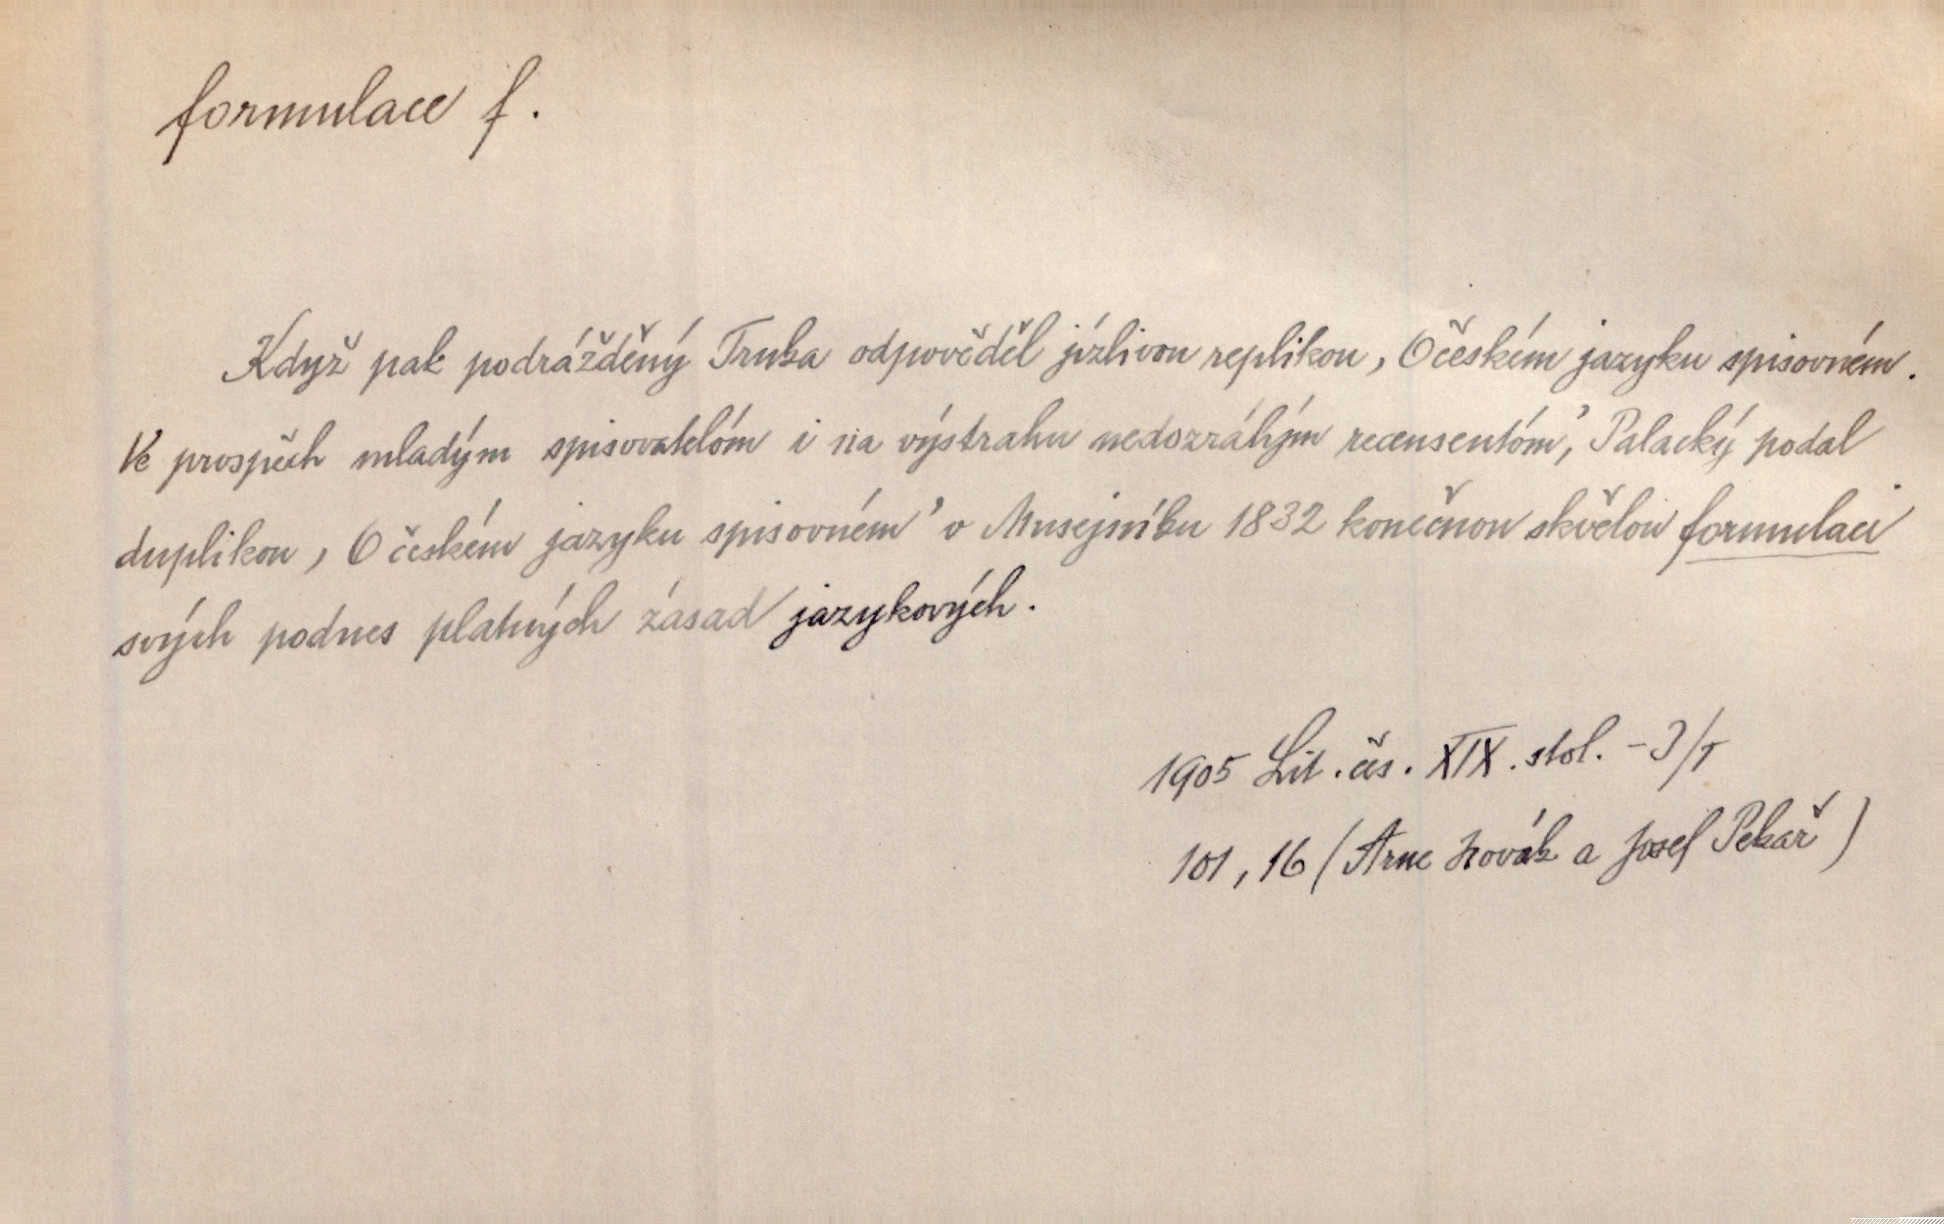 formulace f.
Když pak podrážděný Truka odpověděl jízlivou replikou, O českém jazyku spisovném.
Ve prospěch mladým spisovatelóm i na výstrahu nedozrálým recensentóm', Palacký podal
duplikou, O českém jazyku spisovném' v Musejníku 1832 konečnou skvělou formulaci
svých podnes platných zásad jazykových.
1905 Lit. čes. XIX. stol. - 3/1
101, 16 (Arne Novák a Josef Pekař)